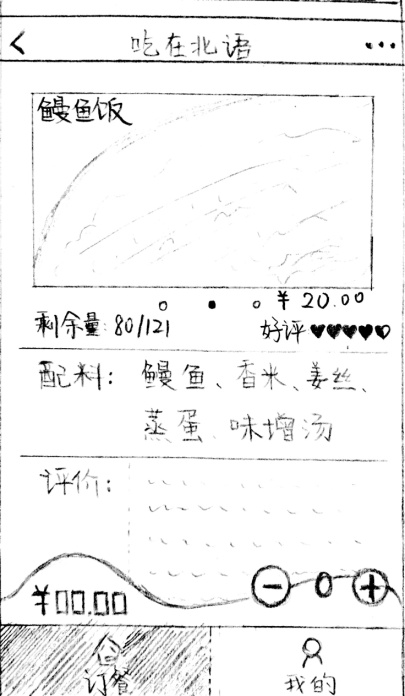 吃在北语
鳗鱼饭
¥ 20.00
剩余量: 80/121
好评
配料: 鳗鱼、香米、姜丝、
蒸蛋、味增汤
评价:
¥00.00
0
订餐
我的